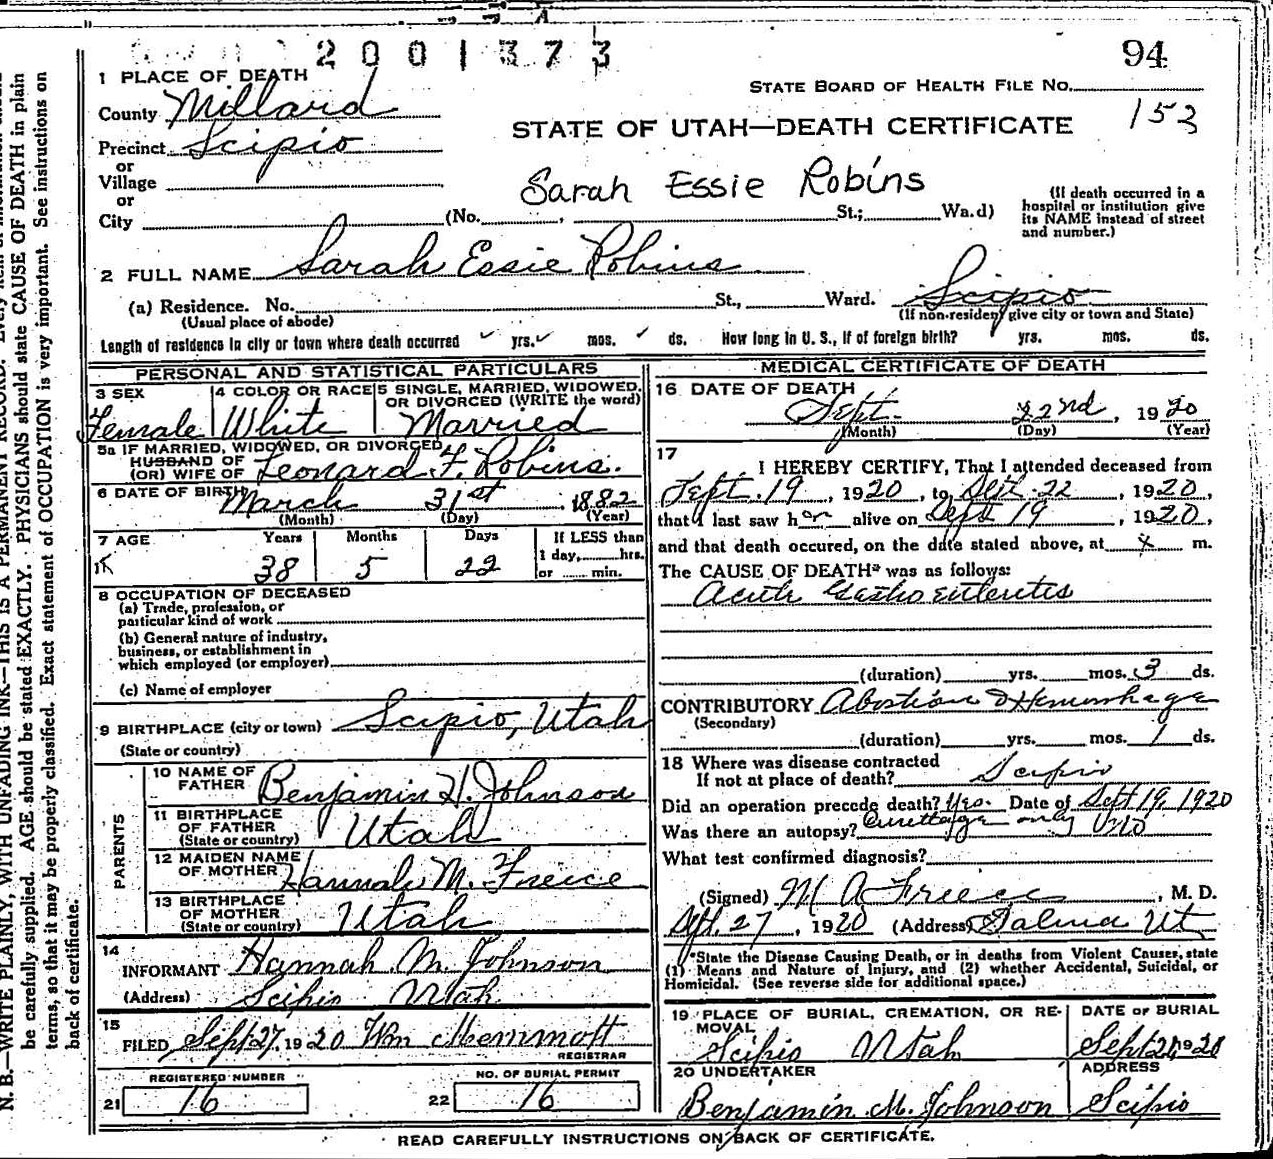 2001373
94
1 PLACE OF DEATH
STATE BOARD OF HEALTH FILE NO.
County Millard
153
STATE OF UTAH—DEATH CERTIFICATE
Precinct Scipio
or
Village
Sarah Essie Robins
or
City (No. , St.; Wa.d)
(If death occurred in a
hospital or institution give
its NAME instead of street
and number.)
2 FULL NAME Sarah Essie Robins
(a) Residence. No. St., Ward. Scipio
(Usual place of abode) (If non-resident give city or town and State)
Length of residence in city or town where death occurred yrs. mos. ds. How long in U. S., if of foreign birth? yrs. mos. ds.
PERSONAL AND STATISTICAL PARTICULARS
3 SEX 4 COLOR OR RACE 5 SINGLE, MARRIED, WIDOWED,
OR DIVORCED (WRITE the word)
Female White Married
5a IF MARRIED, WIDOWED, OR DIVORCED
HUSBAND OF
(OR) WIFE OF Leonard F. Robins.
6 DATE OF BIRTH March 31st, 1882
(Month) (Day) (Year)
7 AGE Years Months Days If LESS than
1 day, hrs.
38 5 22 or min.
8 OCCUPATION OF DECEASED
(a) Trade, profession, or
particular kind of work
(b) General nature of industry,
business, or establishment in
which employed (or employer)
(c) Name of employer
9 BIRTHPLACE (city or town) Scipio, Utah
(State or country)
PARENTS
10 NAME OF
FATHER Benjamin H. Johnson
11 BIRTHPLACE
OF FATHER
(State or country) Utah
12 MAIDEN NAME
OF MOTHER Hannah M. Freice
13 BIRTHPLACE
OF MOTHER
(State or country) Utah
14
INFORMANT Hannah M. Johnson
(Address) Scipio Utah
15
FILED Sept 27, 1920 Wm Memmott
REGISTRAR
REGISTERED NUMBER NO. OF BURIAL PERMIT
21 16 22 16
MEDICAL CERTIFICATE OF DEATH
16 DATE OF DEATH
Sept. 22nd, 1920
(Month) (Day) (Year)
17
I HEREBY CERTIFY, That I attended deceased from
Sept. 19, 1920, to Sept. 22, 1920,
that I last saw her alive on Sept 19, 1920,
and that death occured, on the date stated above, at x m.
The CAUSE OF DEATH* was as follows:
Acute Gastro enteretis
(duration) yrs. mos. 3 ds.
CONTRIBUTORY Abortion & Hemorrhage
(Secondary)
(duration) yrs. mos. 1 ds.
18 Where was disease contracted
If not at place of death? Scipio
Did an operation precede death? Yes. Date of Sept 19, 1920
Was there an autopsy? Curettage only No
What test confirmed diagnosis?
(Signed) M A Freece, M. D.
Sept. 27, 1920 (Address) Salina Ut
*State the Disease Causing Death, or in deaths from Violent Causes, state
(1) Means and Nature of Injury, and (2) whether Accidental, Suicidal, or
Homicidal. (See reverse side for additional space.)
19 PLACE OF BURIAL, CREMATION, OR RE-
MOVAL
DATE OF BURIAL
Scipio Utah Sept 1920
20 UNDERTAKER ADDRESS
Benjamin M. Johnson Scipio
READ CAREFULLY INSTRUCTIONS ON BACK OF CERTIFICATE.
N. B.—WRITE PLAINLY, WITH UNFADING INK—THIS IS A PERMANENT RECORD.
be carefully supplied. AGE should be stated EXACTLY. PHYSICIANS should state CAUSE OF DEATH in plain
terms, so that it may be properly classified. Exact statement of OCCUPATION is very important. See instructions on
back of certificate.